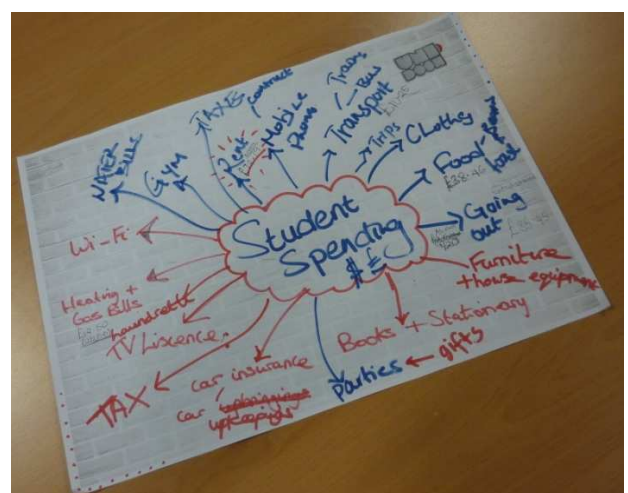 Student
Spending
$ £
WATER
BILLS
GYM
TAXES
Rent
Mobile
Phone
contract
Transport
Train
Bus
Trips
Clothes
Food
£38.46
Going
out
Furniture
+ house equipment
Books + Stationary
gifts
Parties
car insurance
car
upkeepings
TAX
TV Liscence
Laundrette
Heating +
Gas Bills
Wi-Fi